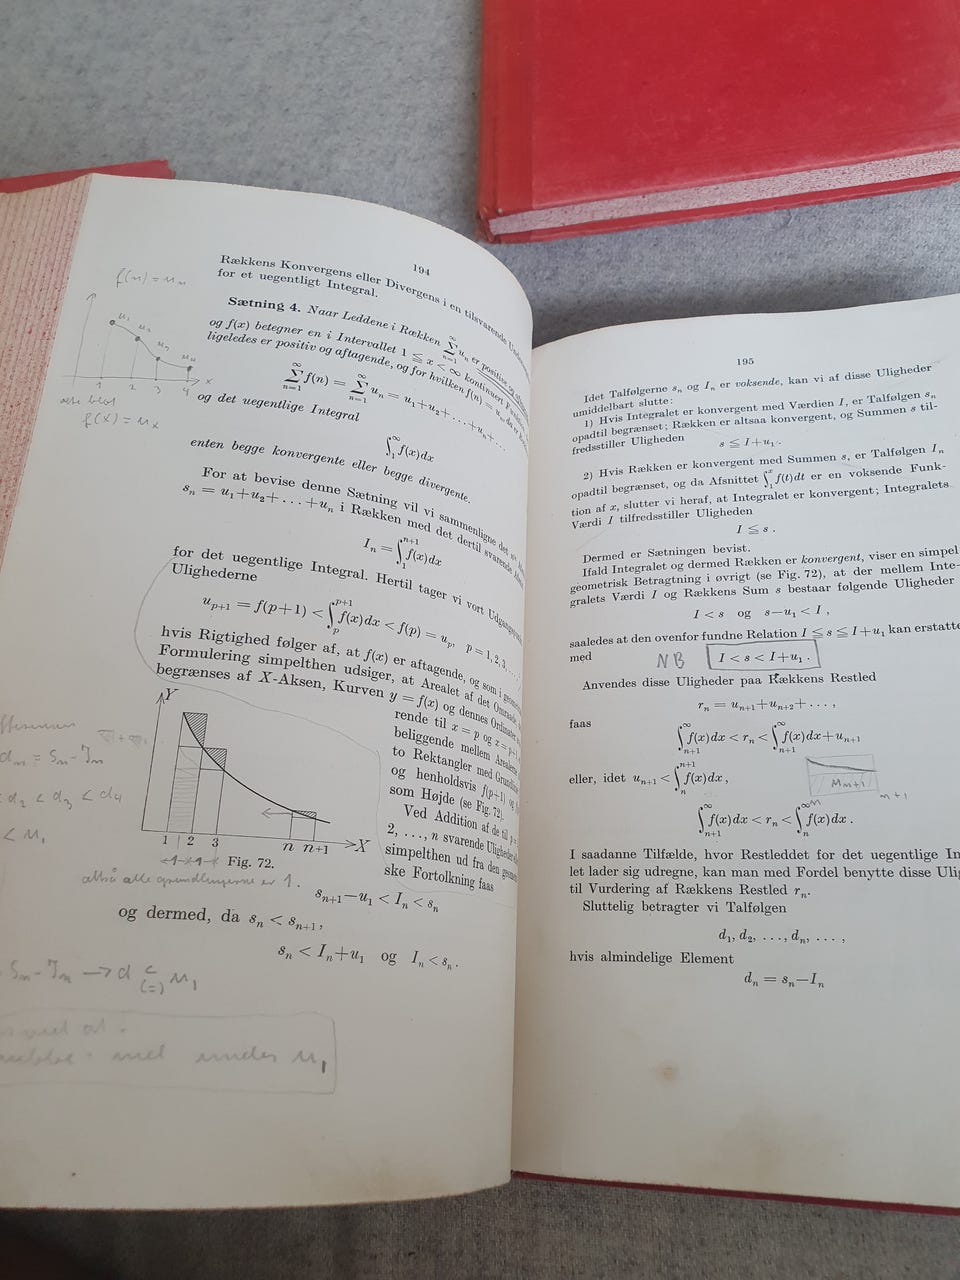 194
Rækkens Konvergens eller Divergens i en tilsvarende
for et uegentligt Integral.
f(n) = u_n
Sætning 4. Naar Leddene i Rækken \sum_{n=1}^{\infty} u_n er positive og
og f(x) betegner en i Intervallet 1 ≦ x < ∞ kontinuert
ligeledes er positiv og aftagende, og for hvilken f(n) = u_n, da er
\sum_{n=1}^{\infty} f(n) = \sum_{n=1}^{\infty} u_n = u_1+u_2+...+u_n+...
og det uegentlige Integral
u_1
1 2 3 4 x
f(x) = u_x
\int_1^{\infty} f(x)dx
enten begge konvergente eller begge divergente.
For at bevise denne Sætning vil vi sammenligne det
s_n = u_1+u_2+...+u_n i Rækken med det dertil svarende
I_n = \int_1^{n+1} f(x)dx
for det uegentlige Integral. Hertil tager vi vort
Ulighederne
u_{p+1} = f(p+1) < \int_p^{p+1} f(x)dx < f(p) = u_p, p = 1, 2, 3, ...
hvis Rigtighed følger af, at f(x) er aftagende, og som i
Formulering simpelthen udsiger, at Arealet af det
begrænses af X-Aksen, Kurven y = f(x) og dennes
rende til x = p og x = p+1
beliggende mellem Arealerne
to Rektangler med
og henholdsvis f(p+1) og
som Højde (se Fig. 72).
Ved Addition af de til p =
2, ..., n svarende
simpelthen ud fra den
ske Fortolkning faas
Y
1 2 3 n n+1 X
Fig. 72.
d_n = S_n - I_n
d_2 < d_3 < d_4
< u_1
altså alle grundlinjerne er 1.
s_{n+1}-u_1 < I_n < s_n
og dermed, da s_n < s_{n+1},
s_n < I_n+u_1 og I_n < s_n.
S_n - I_n → d < (=) u_1
u_1
195
Idet Talfølgerne s_n og I_n er voksende, kan vi af disse Uligheder
umiddelbart slutte:
1) Hvis Integralet er konvergent med Værdien I, er Talfølgen s_n
opadtil begrænset; Rækken er altsaa konvergent, og Summen s til-
fredsstiller Uligheden
s ≦ I+u_1.
2) Hvis Rækken er konvergent med Summen s, er Talfølgen I_n
opadtil begrænset, og da Afsnittet \int_1^x f(t)dt er en voksende Funk-
tion af x, slutter vi heraf, at Integralet er konvergent; Integralets
Værdi I tilfredsstiller Uligheden
I ≦ s.
Dermed er Sætningen bevist.
Ifald Integralet og dermed Rækken er konvergent, viser en simpel
geometrisk Betragtning i øvrigt (se Fig. 72), at der mellem Inte-
gralets Værdi I og Rækkens Sum s bestaar følgende Uligheder
I < s og s-u_1 < I,
saaledes at den ovenfor fundne Relation I ≦ s ≦ I+u_1 kan
med NB I < s < I+u_1.
Anvendes disse Uligheder paa Rækkens Restled
r_n = u_{n+1}+u_{n+2}+...,
faas
\int_{n+1}^{\infty} f(x)dx < r_n < \int_{n+1}^{\infty} f(x)dx+u_{n+1}
eller, idet u_{n+1} < \int_n^{n+1} f(x)dx,
u_{n+1}
n n+1
\int_{n+1}^{\infty} f(x)dx < r_n < \int_n^{\infty} f(x)dx.
I saadanne Tilfælde, hvor Restleddet for det uegentlige
let lader sig udregne, kan man med Fordel benytte disse
til Vurdering af Rækkens Restled r_n.
Sluttelig betragter vi Talfølgen
d_1, d_2, ..., d_n, ...,
hvis almindelige Element
d_n = s_n-I_n